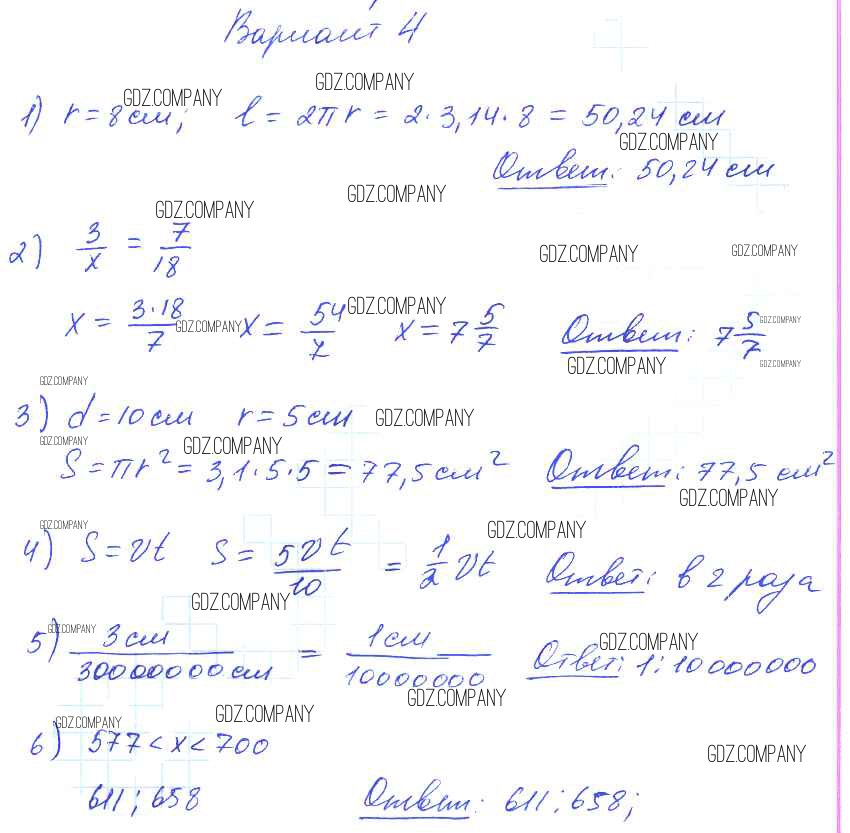 Вариант 4
GDZ.COMPANY
GDZ.COMPANY
1) r = 8 см; l = 2πr = 2·3,14·8 = 50,24 см
GDZ.COMPANY
Ответ: 50,24 см
GDZ.COMPANY
GDZ.COMPANY
2) 3/x = 7/18
GDZ.COMPANY GDZ.COMPANY
x = 3·18/7 x = 54/7 x = 7 5/7 Ответ: 7 5/7
GDZ.COMPANY GDZ.COMPANY GDZ.COMPANY
GDZ.COMPANY GDZ.COMPANY
GDZ.COMPANY
3) d = 10 см r = 5 см GDZ.COMPANY
GDZ.COMPANY GDZ.COMPANY
S = πr² = 3,1·5·5 = 77,5 см² Ответ: 77,5 см²
GDZ.COMPANY
GDZ.COMPANY GDZ.COMPANY
4) S = vt S = 5vt/10 = 1/2 vt Ответ: в 2 раза
GDZ.COMPANY
GDZ.COMPANY GDZ.COMPANY
5) 3 см/30000000 см = 1 см/10000000 Ответ: 1:10000000
GDZ.COMPANY
GDZ.COMPANY GDZ.COMPANY
6) 577 < x < 700
GDZ.COMPANY
611; 658 Ответ: 611; 658;